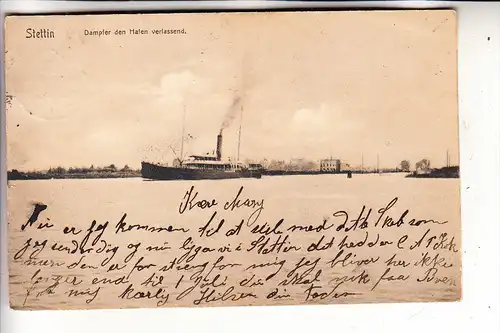 Stettin
Dampfer den Hafen verlassend.
Kære Mary
Nu er jeg kommen til at seile med dette Skib som
jeg sendte dig og nu ligger vi i Stettin det hedder C A P Kok
men den er for streng for mig jeg bliver her ikke
længer end til 1 Juli du skal nok faa Brev
fra mig kærlig Hilsen din Fader